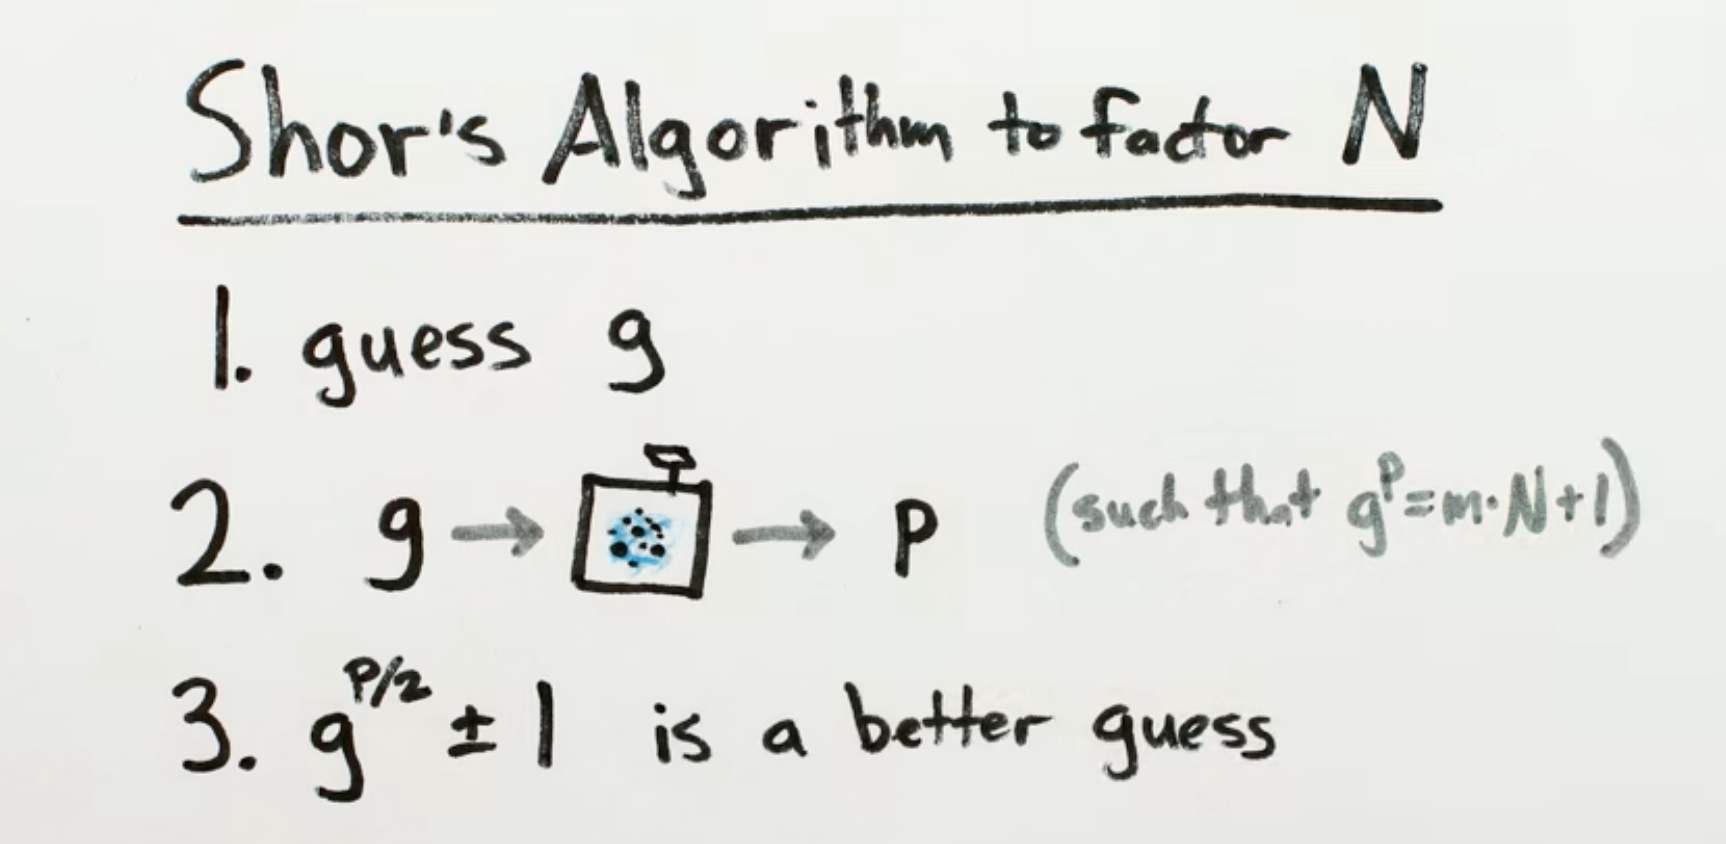 Shor's Algorithm to factor N
1. guess g
2. g → → p (such that g^p=m·N+1)
3. g^p/2 ± 1 is a better guess